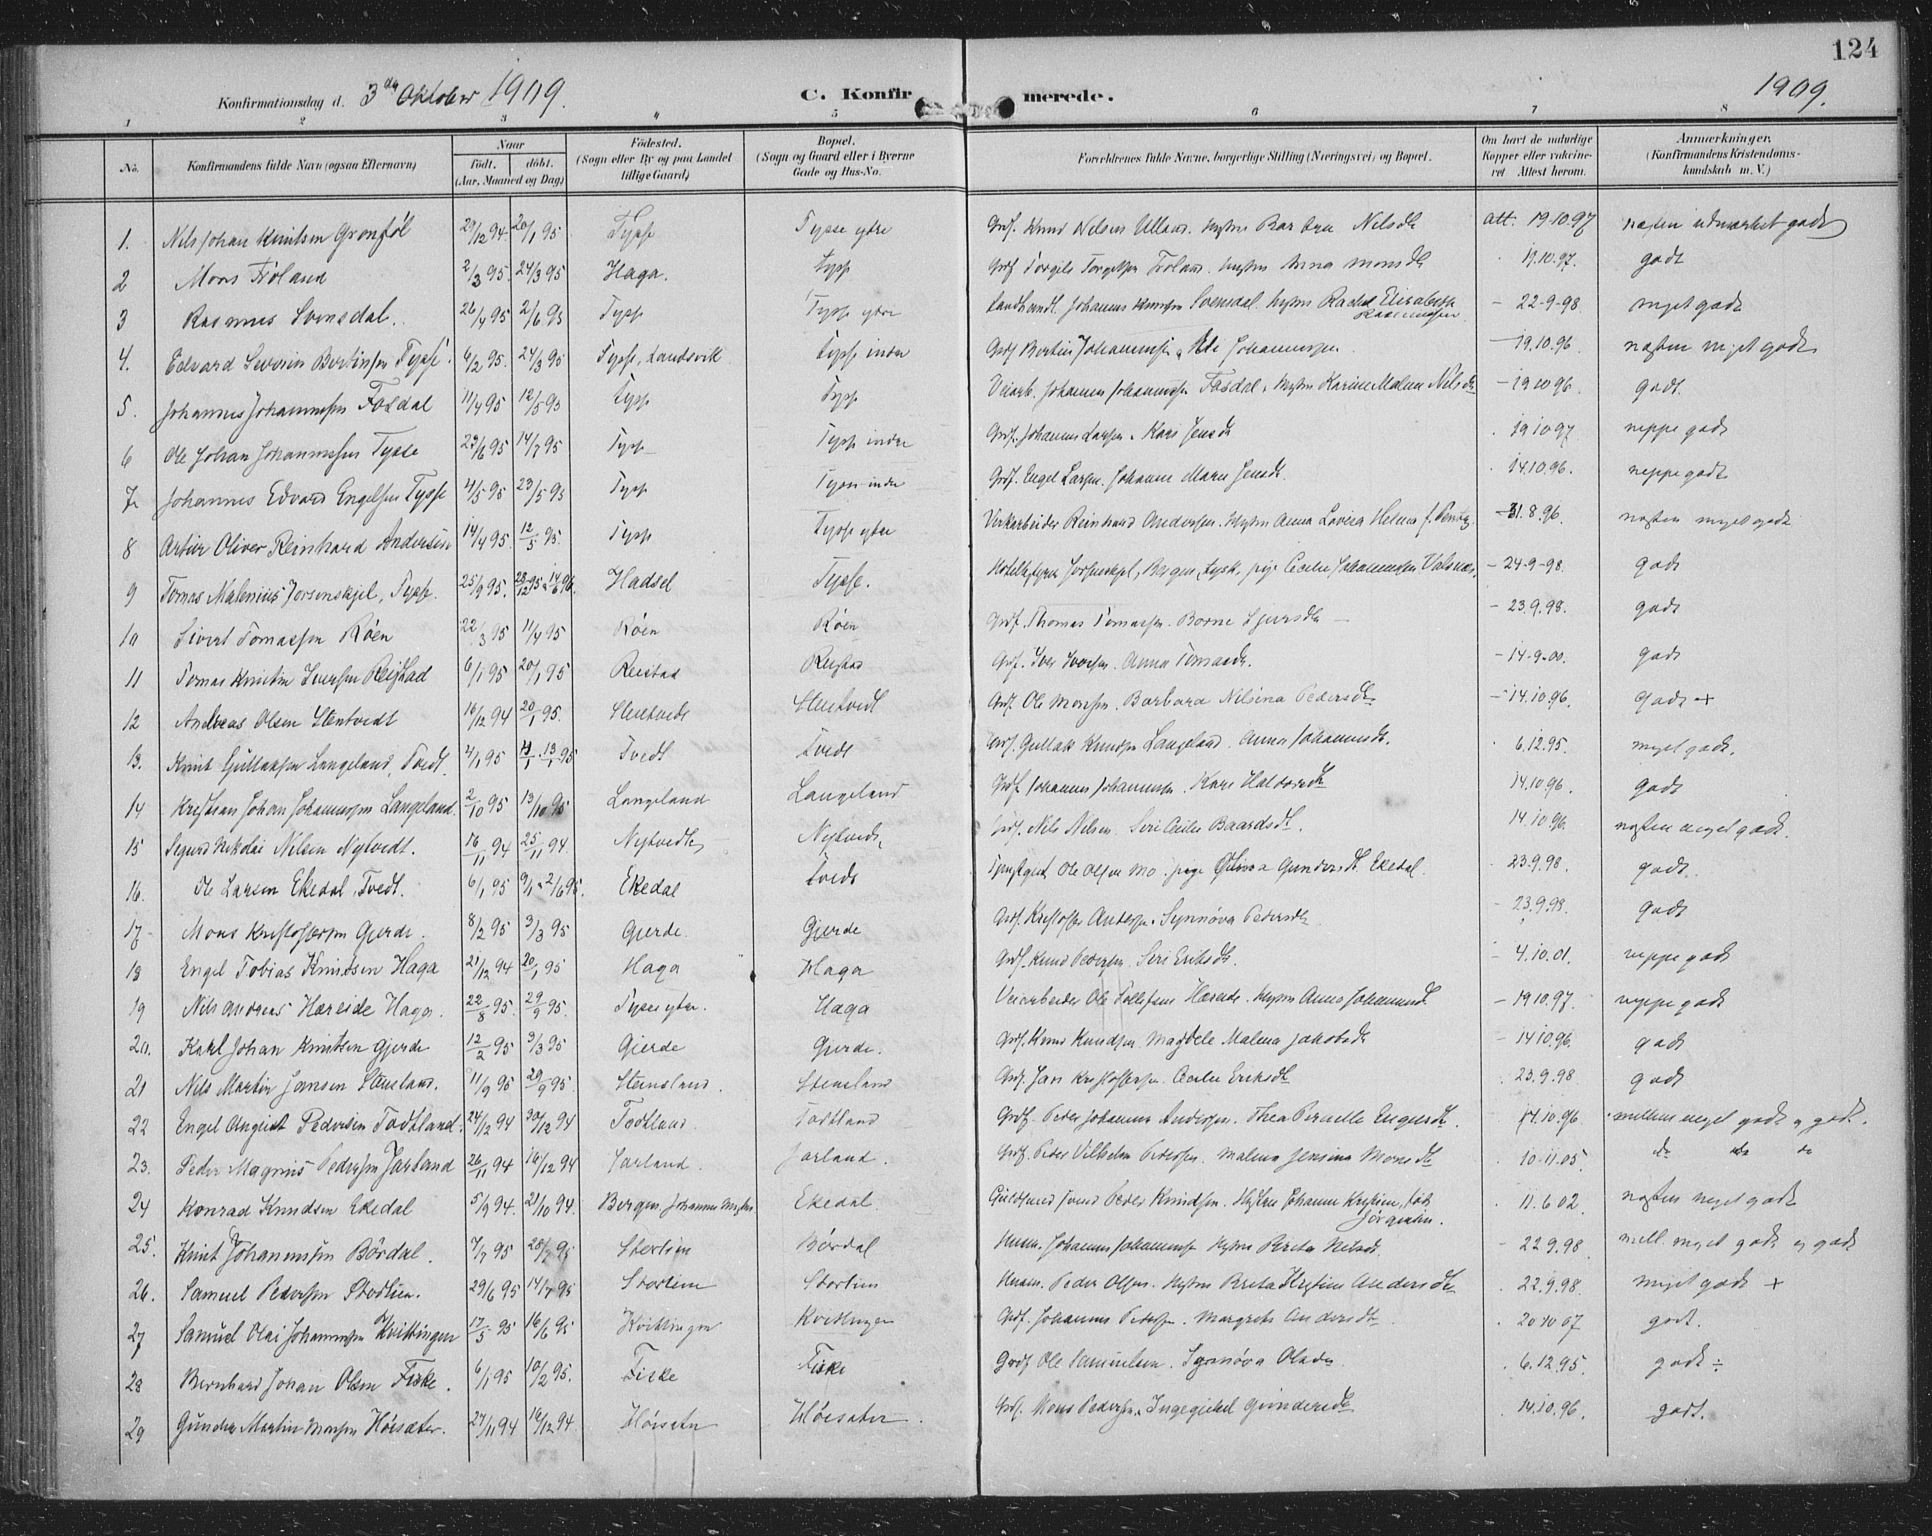 124
Konfirmationsdag d. 3die Oktober 1909. C. Konfirmerede. 1909.
1 2 3 4 5 6 7 8
No. Konfirmandens fulde Navn (ogsaa Efternavn) Naar født. døbt. (Aar, Maaned og Dag) Fødested. (Sogn eller By og paa Landet tillige Gaard) Bopæl. (Sogn og Gaard eller i Byerne Gade og Hus-No. Forældrenes fulde Navne, borgerlige Stilling (Næringsvei) og Bopæl. Om havt de naturlige Kopper eller vakcineret Attest herom. Anmærkninger. (Konfirmandens Kristendomskundskab m. V.)
1. Nils Johan Knutsen Grønføl 29/12 94 20/1 95 Tysse Tysse ytre Grdf. Knud Nilsen Ulland. Hustru Barbra Nilsdtr att. 19.10.97 næsten udmærket godt
2 Mons Frøland 2/3 95 24/3 95 Haga. Tysse Grdf Torgils Torgilsen Frøland. Hustru Anna Monsdtr 19.10.97. godt
3 Rasmus Svensdal. 26/4 95 2/6 95 Tysse Tysse ytre Landhandl. Johannes Knutsen Svensdal. Hustru Rachel Elisabeth Rasmussen - 22-9-98 meget godt
4. Edvard Severin Bertinsen Tysse. 6/2 95. 24/3 95 Tysse, Landsvik Tysse indre Grdf Bertin Johannessen Johannessen. - 19.10.96 næsten meget godt
5. Johannes Johannessen Fosdal 11/4 95 12/5 95 Tysse Tysse Veiarb. Johannes Johannessen Fosdal, Hustru Karine Malene Nilsdtr - 19 10 96. godt.
6 Ole Johan Johannessen Tysse 23/6 95 14/7 95 Tysse Tysse indre Grdf. Johannes Larsen. Kari Jensdtr 19 10 97 neppe godt
7 Johannes Edvard Engelsen Tysse 4/5 95 23/5 95 Tysse Tysse indre Grdf. Engel Larsen. Johanne Marie Jensdtr 14.10.96. neppe godt
8 Artur Oliver Reinhard Andersen 14/4 95. 12/5 95. Tysse Tysse ytre Reinhard Andersen. Hustru Anna Lovisa Helena f. - 31.8.96. næsten meget godt
9 Tomas Malenius Jorsenskjel, Tysse. 25/9 95. 28/12 95 - 14/6 96. Hadsel Tysse. Bergen, pige Cecilie Johannessen - 24-9-98. godt
10 Sivert Tomassen Røen 22/3 95 11/4 95 Røen Røen Grdf. Thomas Tomassen. Borne Sjursdtr - 23.9.98. godt
11 Tomas Knutin Iversen Reistad 6/1 95 20/1 95 Reistad Reistad Grdf. Iver Iversen. Anna Tomasdtr. - 14-9-00. godt
12 Andreas Olsen Stentvedt 16/12 94 20/1 95. Stentvedt Stentvedt Grdf. Ole Monsen. Barbara Nilsina Pedersdtr - 14.10.96. godt +
13. Knut Gullaksen Langeland, Tvedt. 4/1 95 11/1 - 13/1 95 Tvedt Tvedt Grdf. Gullak Knudsen Langeland. Anna Johannesdtr. 6.12.95. meget godt.
14 Kristian Johan Johannessen Langeland. 2/10 95 13/10 95 Langeland Langeland Grdf Johannes Johannessen. Kari Haldorsdtr 14.10.96. godt
15 Sigurd Nikolai Nilsen Nytvedt. 16/11 94 25/11 94. Nytvedt, Nytvedt, Grdf. Nils Nilsen. Siri Cecilie Baardsdtr. 14.10.96 næsten meget godt.
16. Ole Larsen Ekedal, Tvedt. 6/1 95 9/1 - 2/6 95. Ekedal Tvedt Ole Olsen Mo. pige Gundersdtr Ekedal. 23.9.98. godt.
17 Mons Kristoffersen Gjerde. 8/2 95 3/3 95 Gjerde. Gjerde Grdf. Kristoffer Andersen. Synnøva Pedersdtr - 23.9.98. godt
18 Engel Tobias Knudsen Haga 21/12 94 20/1 95 Haga Haga Grdf. Knud Pedersen. Siri Eriksdtr. - 4.10.01. neppe godt
19 Nils Andreas Hæreide Haga. 22/8 95. 29/9 95. Tysse ytre. Haga Veiarbeider Ole Tollefsen Hæreide. Hustru Anna Johannesdtr - 19 10.97. neppe godt
20. Karl Johan Knutsen Gjerde 12/2 95 3/3 95 Gjerde Gjerde. Grdf. Knud Knudsen Magdele Malena Jakobsdtr - 14 10.96. godt
21 Nils Martin Jansen Stensland. 11/9 95 29/9 95. Stensland. Stensland Grdf. Jan Kristoffersen. Cecilie Eriksdtr 23.9.98 godt
22 Engel August Pedersen Todtland. 24/12 94 30/12 94 Todtland. Todtland Grdf. Peder Johannes Andersen. Thea Pernille Engelsdtr. 14.10.96 mellem meget godt og godt.
23. Peder Magnus Pedersen Jarland 26/11 94 16/12 94 Jarland. Jarland. Grdf. Peder Vilhelm Pedersen. Malena Jensina Monsdtr 10.11.05. do do do
24 Konrad Knudsen Ekedal 5/9 94. 21/10 94. Bergen Johannes Ekedal. Peder Knudsen. Hustru Johanne Kristine, født Jørgensen. 11.6 02. næsten meget godt
25. Knut Johannessen Børdal. 7/7 95 28/7 95 Stortien Børdal Husm. Johannes Johannessen Hustru Brita Nilsdtr. - 22 9.98 mell. meget godt og godt
26. Samuel Pedersen Stortien. 29/6 95 14/7 95 Stortien Stortien Husm. Peder Olsen. Hustru Brita Kristine Andersdtr - 22.9.98. meget godt +
27 Samuel Olai Johannessen Kvittingen 17/5 95 16/6 95 Kvittingen Kvittingen Grdf. Johannes Pedersen. Margrete Andersdtr 20 10 07 godt.
28 Bernhard Johan Olsen Fiske. 6/1 95 10/2 95. Fiske Fiske Grdf Ole Samuelsen. Synnøva Olsdtr 6.12.95. godt ÷
29 Gunder Martin Monsen Høisæter. 27/11 94 16/12 94. Høisæter Høisæter. Grdf. Mons Pedersen. Ingegjerd Gundersdtr 14.10.96. godt.